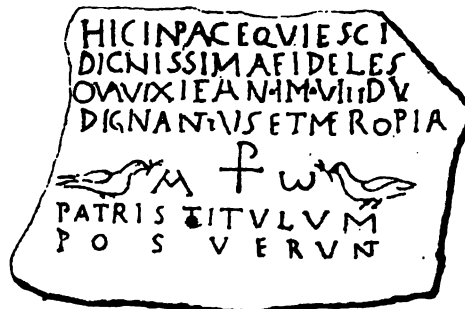 HICINPACEQVIESCI
DICNISSIMAFIDELES
OVAVIXIEAN·IM·VIIIDV
DIGNANTIVSETMEROPIA
A ⳨ ω
PATRIS TITVLVM
POSVERVNT